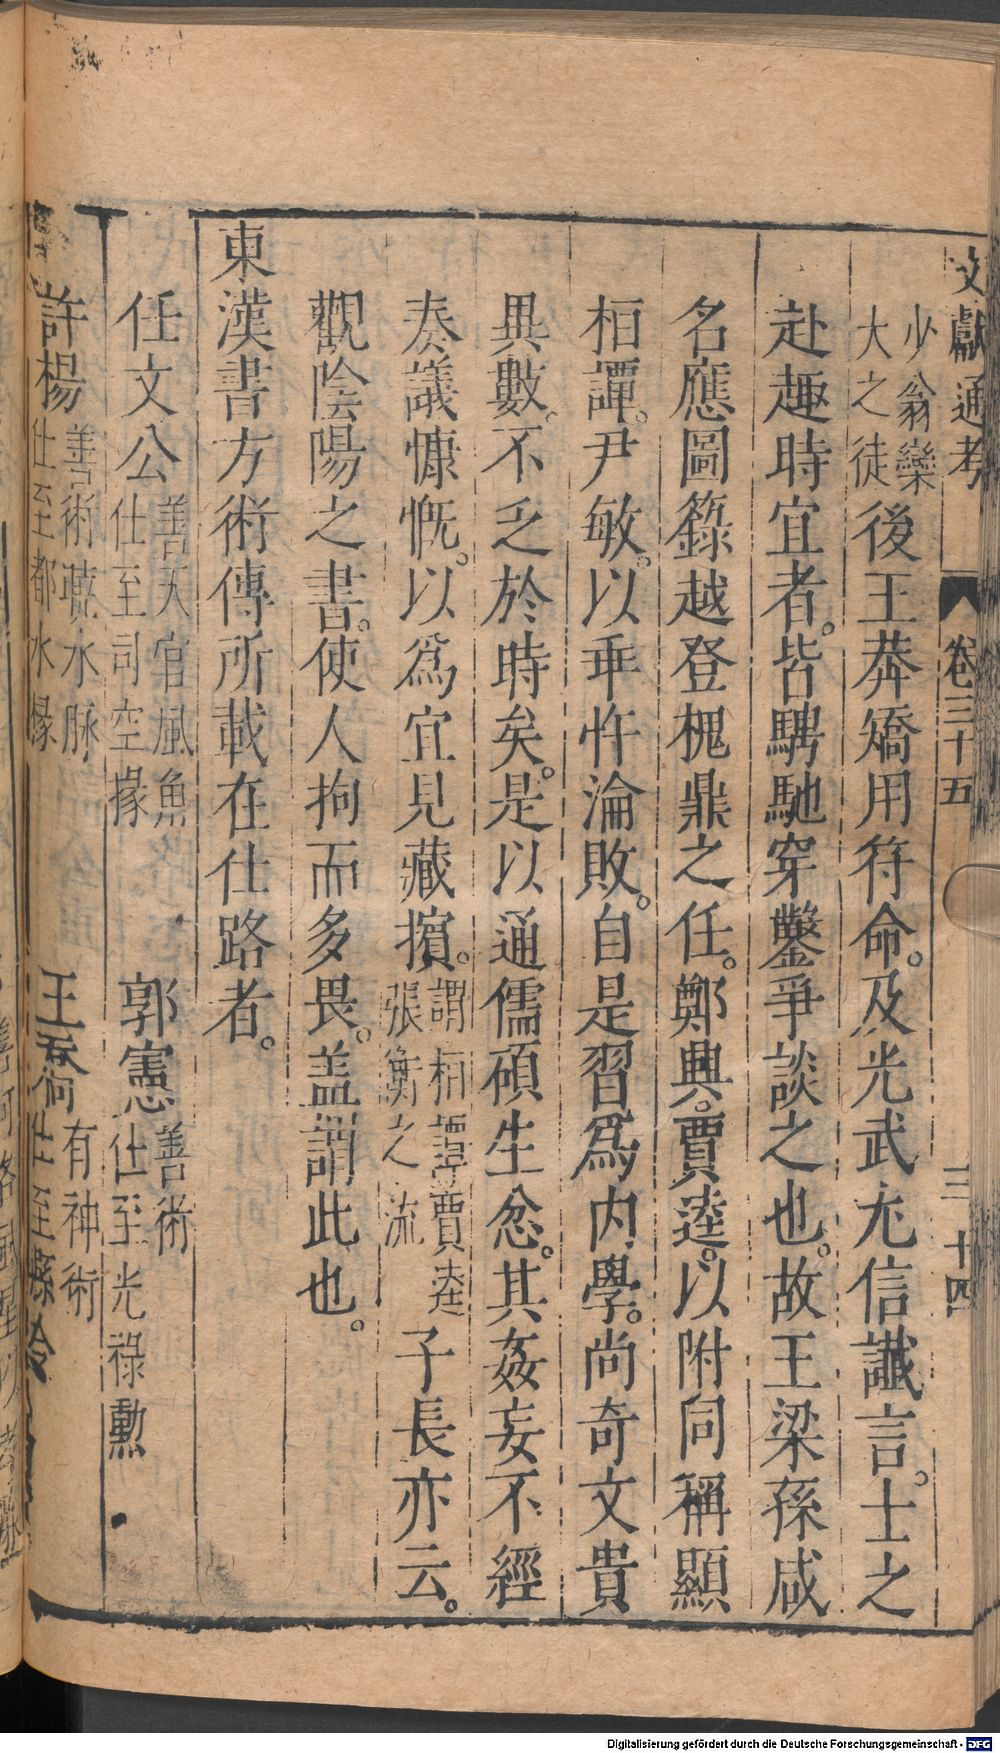 文獻通考 卷三十五 三 十四
少翁欒大之徒後王莽矯用符命。及光武尤信讖言。士之
赴趣時宜者。皆騁馳穿鑿爭談之也。故王梁孫咸
名應圖籙越登槐鼎之任。鄭興。賈逵。以附同稱顯
桓譚。尹敏。以乖忤淪敗。自是習爲内學。尚奇文貴
異數。不乏於時矣。是以通儒碩生忿。其姦妄不經
奏議慷慨。以爲宜見藏擯。謂桓譚賈逵張衡之流子長亦云。
觀陰陽之書。使人拘而多畏。盖謂此也。
東漢書方術傳所載在仕路者。
任文公善天官風魚仕至司空掾 郭憲善術仕至光祿勲
許楊善術曉水脉仕至都水掾 王喬有神術仕至縣令
Digitalisierung gefördert durch die Deutsche Forschungsgemeinschaft - DFG